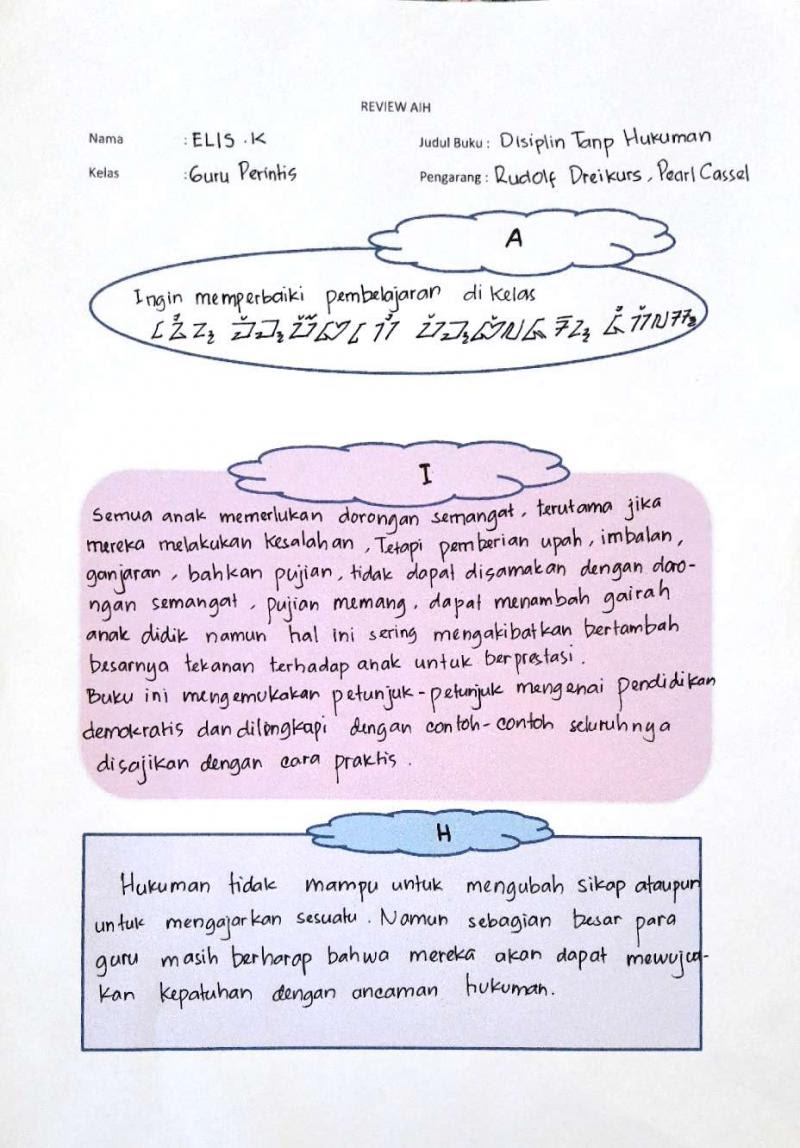 REVIEW AIH
Nama : ELIS .K Judul Buku : Disiplin Tanp Hukuman
Kelas : Guru Perintis Pengarang : Rudolf Dreikurs, Pearl Cassel
A
Ingin memperbaiki pembelajaran di kelas
I
Semua anak memerlukan dorongan semangat, terutama jika
mereka melakukan kesalahan, Tetapi pemberian upah, imbalan,
ganjaran, bahkan pujian, tidak dapat disamakan dengan doro-
ngan semangat, pujian memang, dapat menambah gairah
anak didik namun hal ini sering mengakibatkan bertambah
besarnya tekanan terhadap anak untuk berprestasi.
Buku ini mengemukakan petunjuk-petunjuk mengenai pendidikan
demokratis dan dilengkapi dengan contoh-contoh seluruhnya
disajikan dengan cara praktis.
H
Hukuman tidak mampu untuk mengubah sikap ataupun
untuk mengajarkan sesuatu. Namun sebagian besar para
guru masih berharap bahwa mereka akan dapat mewujud-
kan kepatuhan dengan ancaman hukuman.